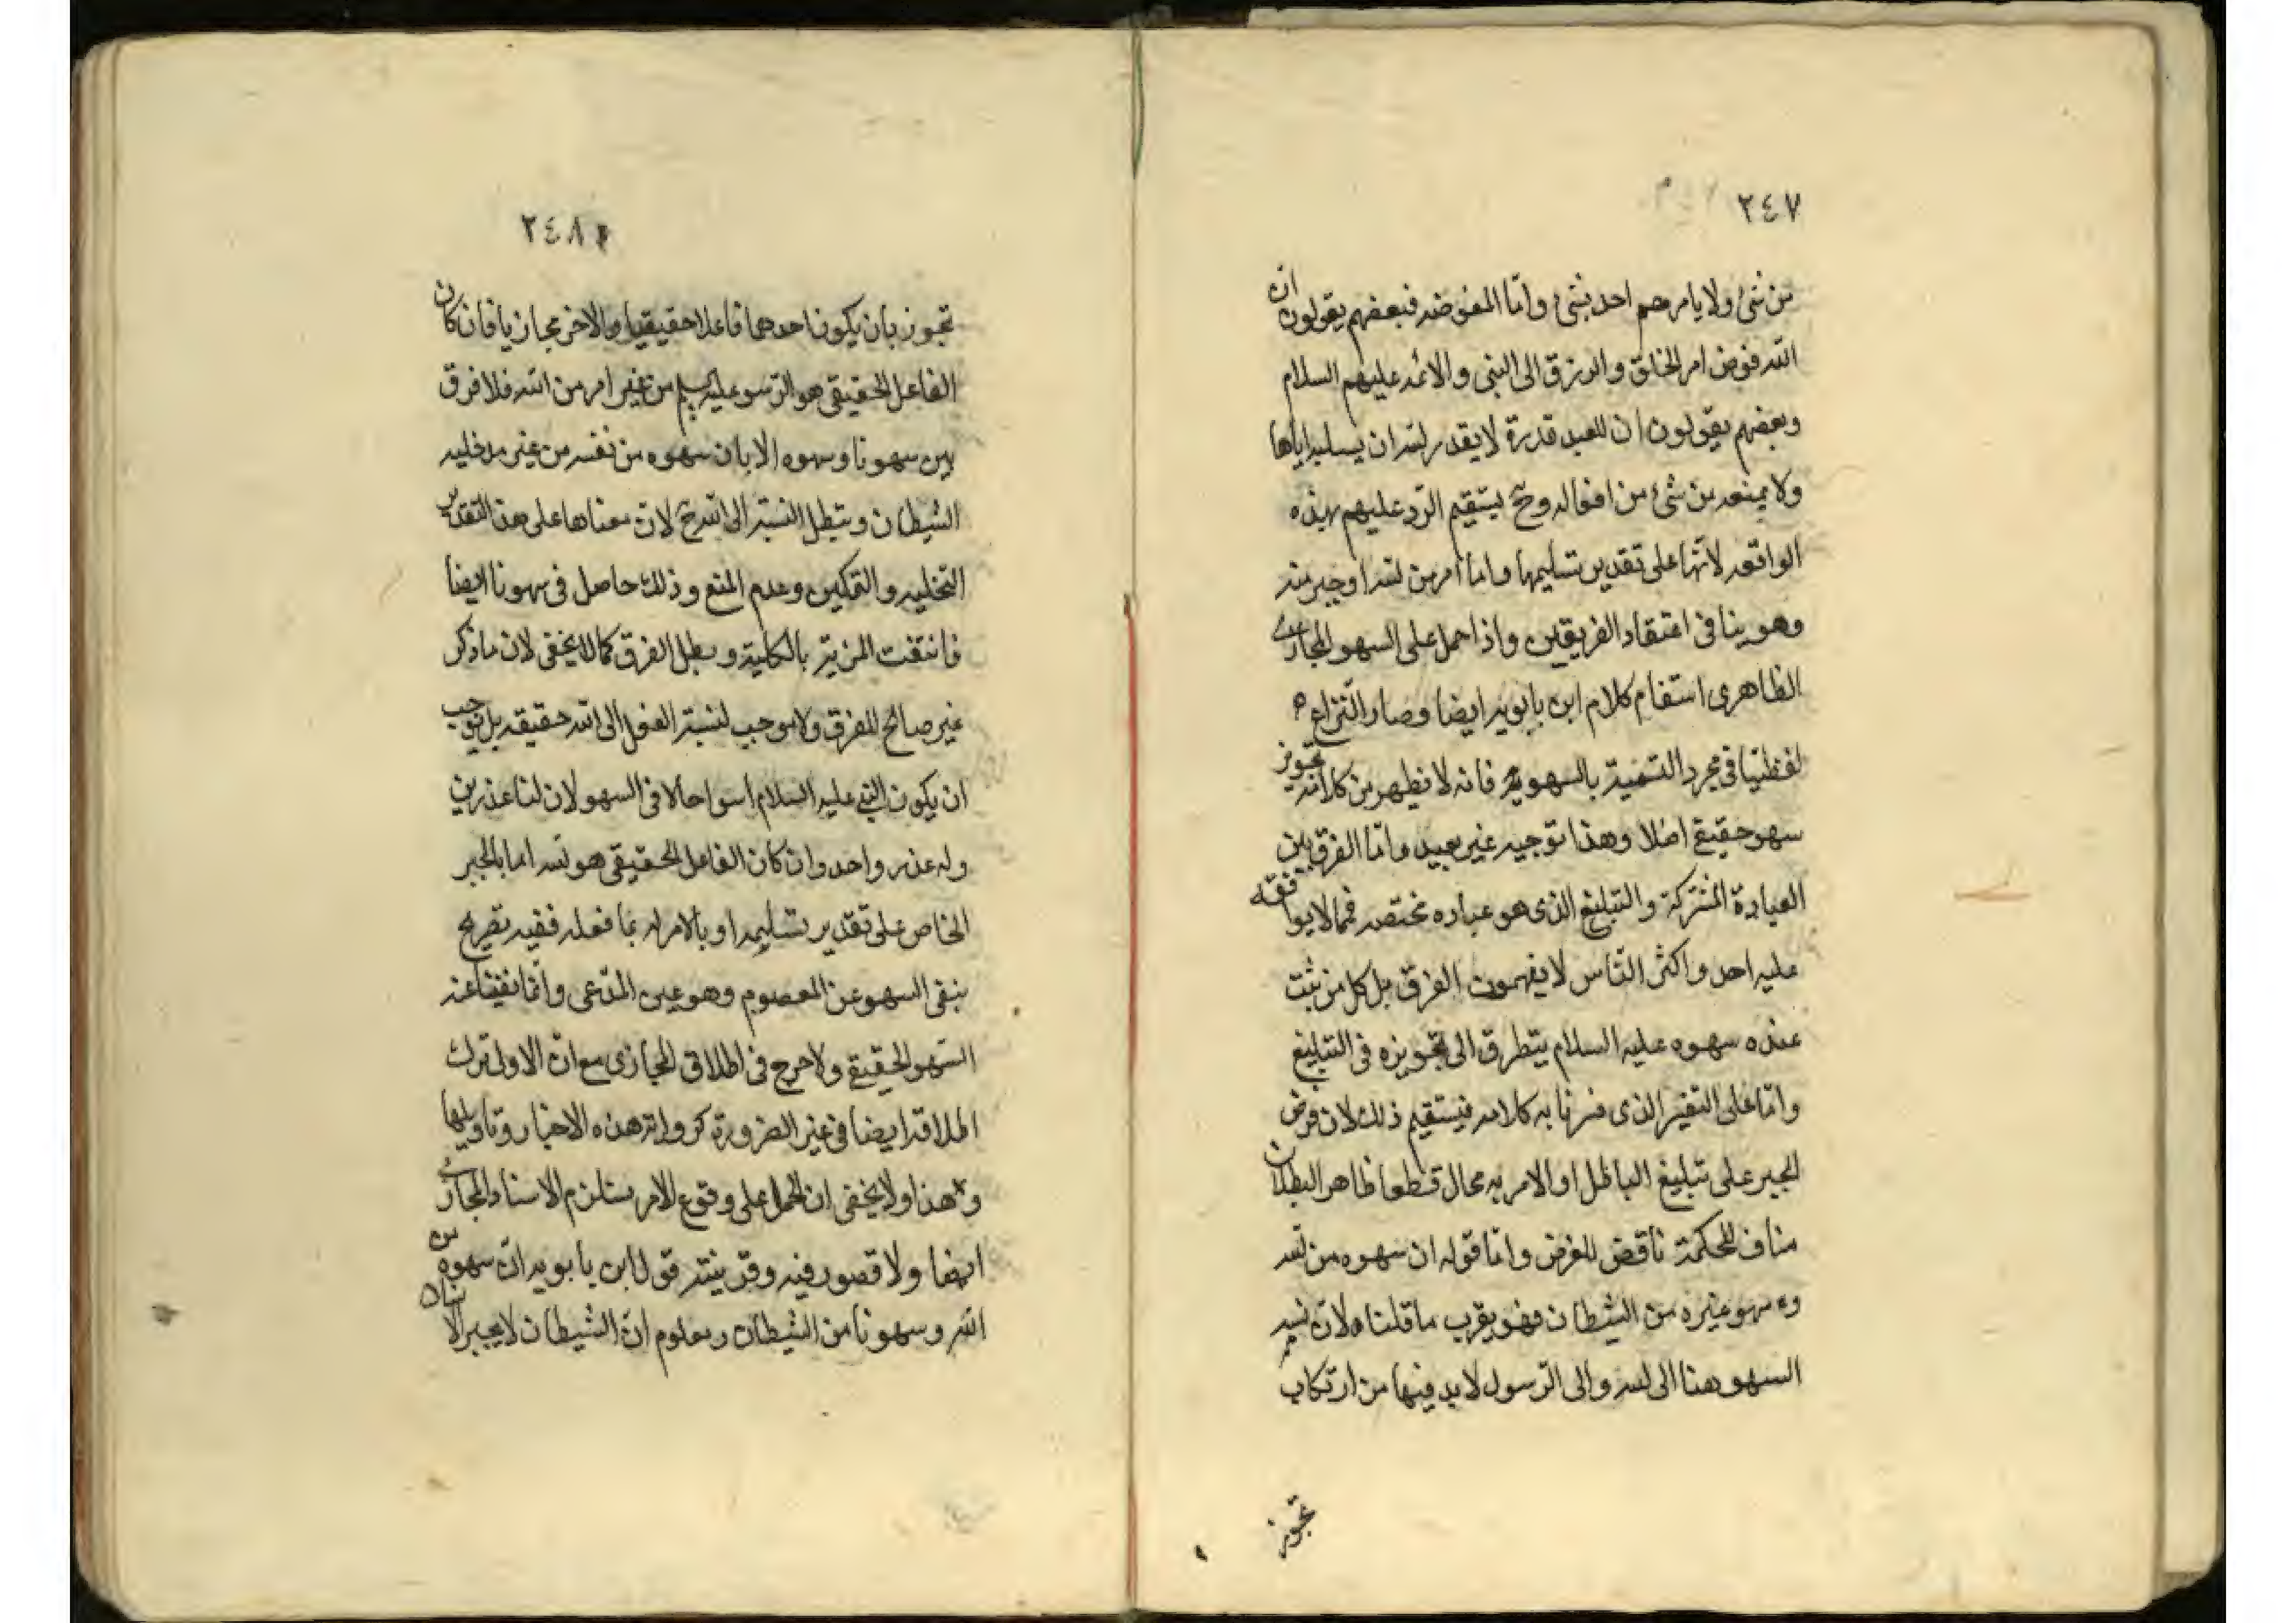 ٢٤٧
من شئ ولا يامرهم احد بشئ واما المفوضه فبعضهم يقولون ان
الله فوض امر الخلق والرزق الى النبى والائمه عليهم السلام
وبعضهم يقولون ان للعبد قدرة لا يقدر الله ان يسلبه اياها
ولا يمنعه من شئ من افعاله وح يستقيم الرّد عليهم بهذه
الواقعه لانّها على تقدير تسليمها واما أمر من الله او جبر منه
وهو ينافى اعتقاد الفريقين واذا حمل على السهو المجازى
الظاهرى استقام كلام ابن بابويه ايضا وصار النّزاع
لفظيّا فى مجرد التسمية بالسهو فانه لا يظهر من كلامه تجويز
سهو حقيقى اصلا وهذا توجيه غير بعيد وامّا الفرق بين
العبادة المشتركة والتبليغ الذى هو عباده مختصه فمما لا يوافقه
عليه احد واكثر النّاس لا يفهمون الفرق بل كل من ثبت
عنده سهوه عليه السلام يتطرق الى تجويزه فى التبليغ
وامّا على التفسير الذى فسرنا به كلامه فيستقيم ذلك لان فرض
الجبر على تبليغ الباطل او الامر به محال قطعا ظاهر البطلان
مناف للحكمة ناقض للغرض وامّا قوله ان سهوه من الله
وسهو غيره من الشيطان فهو يقرب ما قلناه لانّ نسبة
السهو هنا الى الله والى الرّسول لا بد فيها من ارتكاب
تجوز
٢٤٨
تجوز بان يكون احدهما فاعلا حقيقيا والاخر مجازيا فان كان
الفاعل الحقيقى هو الرّسول عليه من غير امر من الله فلا فرق
بين سهونا وسهوه الا بان سهوه من نفسه من غير مدخليه
الشيطان وتبطل النسبة الى الله ح لانّ معناها على هذا التقدير
التخليه والتمكين وعدم المنع وذلك حاصل فى سهونا ايضا
فانتفت المزية بالكلية وبطل الفرق كما لا يخفى لان ما ذكر
غير صالح للفرق ولا موجب لنسبة الفعل الى الله حقيقه بل يوجب
ان يكون النبى عليه السلام اسوا حالا فى السهو لان لنا عذرين
وله عذر واحد وان كان الفاعل الحقيقى هو الله اما بالجبر
الخاص على تقدير تسليمه او بالامر له بما فعله ففيه تصريح
بنفى السهو عن المعصوم وهو عين المدّعى وانّما نفينا عنه
السّهو الحقيقى ولا حرج فى اطلاق المجازى مع انّ الاولى ترك
اطلاقه ايضا فى غير الضرورة كرواية هذه الاخبار وتاويلها
وهذا ولا يخفى ان الحمل على وقوع الامر يستلزم الاسناد المجازى
ايضا ولا قصور فيه وقرينته قول ابن بابويه انّ سهوه من
الله وسهونا من الشيطان ومعلوم انّ الشيطان لا يجبر الانسان